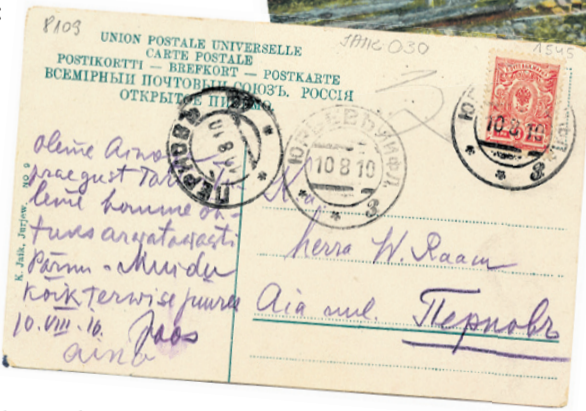 8109
JAIK-030
1545
UNION POSTALE UNIVERSELLE
CARTE POSTALE
POSTIKORTTI — BREFKORT — POSTKARTE
ВСЕМІРНЫЙ ПОЧТОВЫЙ СОЮЗЪ. РОССІЯ
ОТКРЫТОЕ ПИСЬМО.
ПЕРНОВЪ
ЮРЬЕВЪ ЛИФЛ.
10 8 10
3
10 8 10
3
K. Jaik, Jurjew. No 9
oleme
praegust
leme homme
Pärnu - Muidu
Kõik terwise juures
10. VIII. 10. Joos
Aino
herra W. Raam
Aia uul. Перновъ